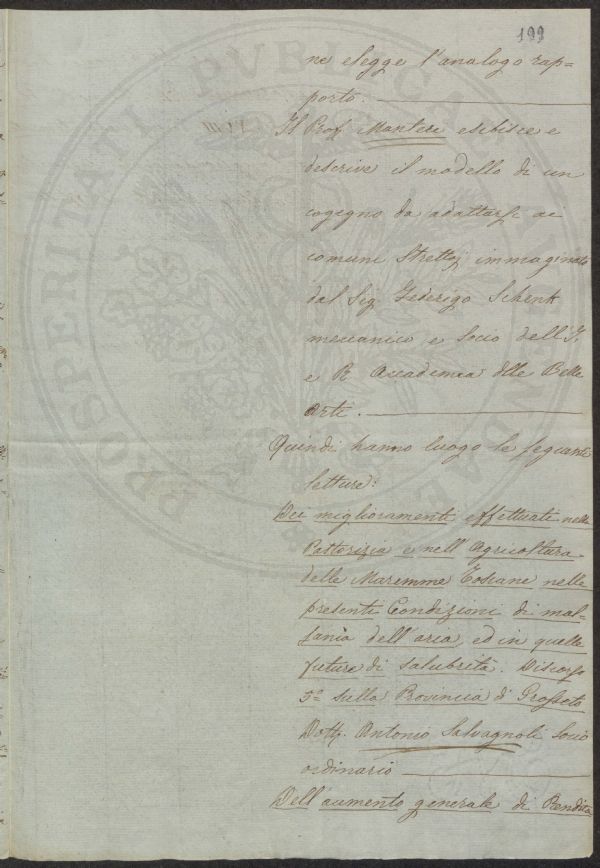 199
ne e legge l'analogo rap=
porto.
Il Prof. Manteri esibisce e
descrive il modello di un
cogegno da adattarsi ai
comuni Strettoj immaginato
dal Sig. Federigo Schenk
meccanico, e Socio dell'I.
e R. Accademia delle Belle
Arti.
Quindi hanno luogo le seguenti
letture:
Dei miglioramenti effettuati nella
Pastorizia e nell'Agricoltura
delle Maremme Toscane nelle
presenti Condizioni di mal=
sania dell'aria, ed in quelle
future di salubrità. Discorso
5° sulla Provincia di Grosseto
Dott. Antonio Salvagnoli Socio
ordinario
Dell'aumento generale di Rendita
PROSPERITATI PVBLICAE AVGENDAE